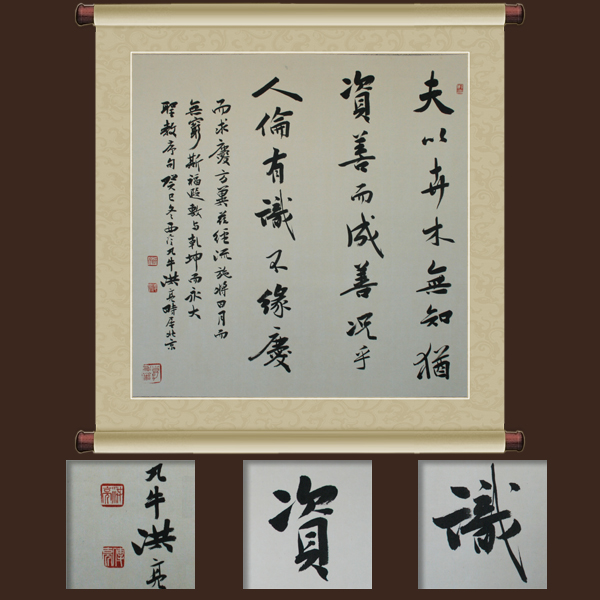 夫以卉木無知猶
資善而成善況乎
人倫有識不緣慶
而求慶方冀茲經流施將日月而
無窮斯福遐敷与乾坤而永大
聖教序句癸巳冬西泠九牛洪亮時居北京
九牛洪亮
資
識